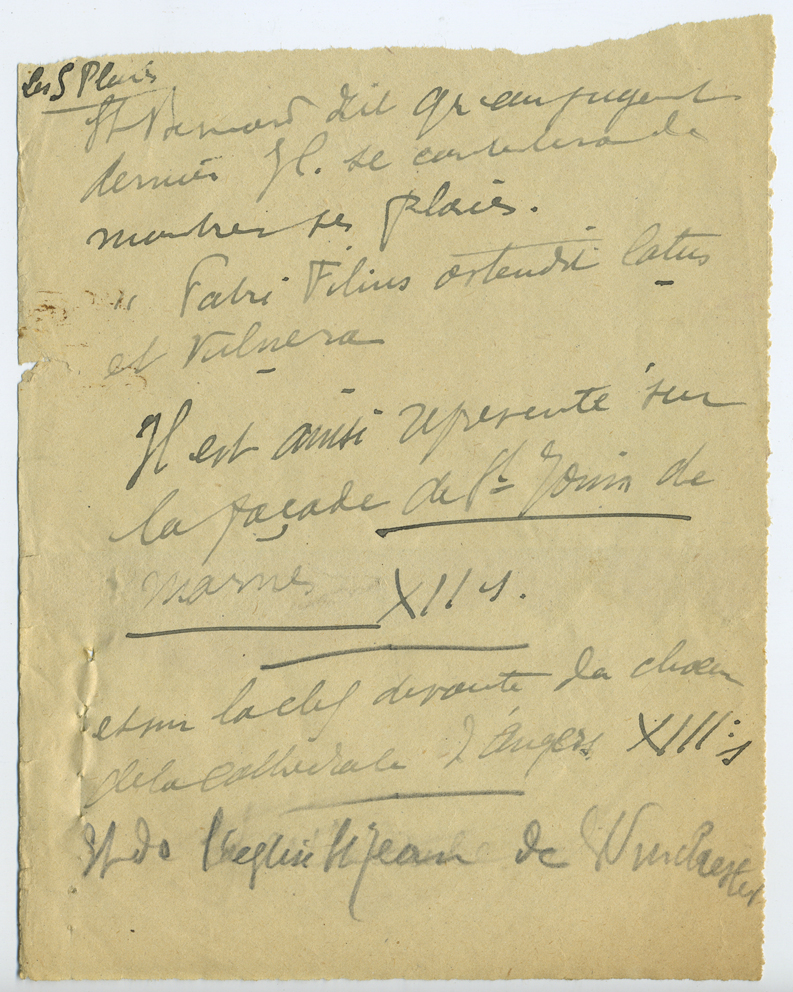 les 5 Plaies
St Bernard dit qu'au jugement
dernier Il. se contentera de
montrer ses plaies.
" Patri Filius ostendit latus
et vulnera
Il est ainsi représenté sur
la façade de St Jouin de
marnes XII s.
et sur la clef de voute du chœur
de la cathédrale d'Angers XIII: s
Et do l'eglise St Jean de Winchester